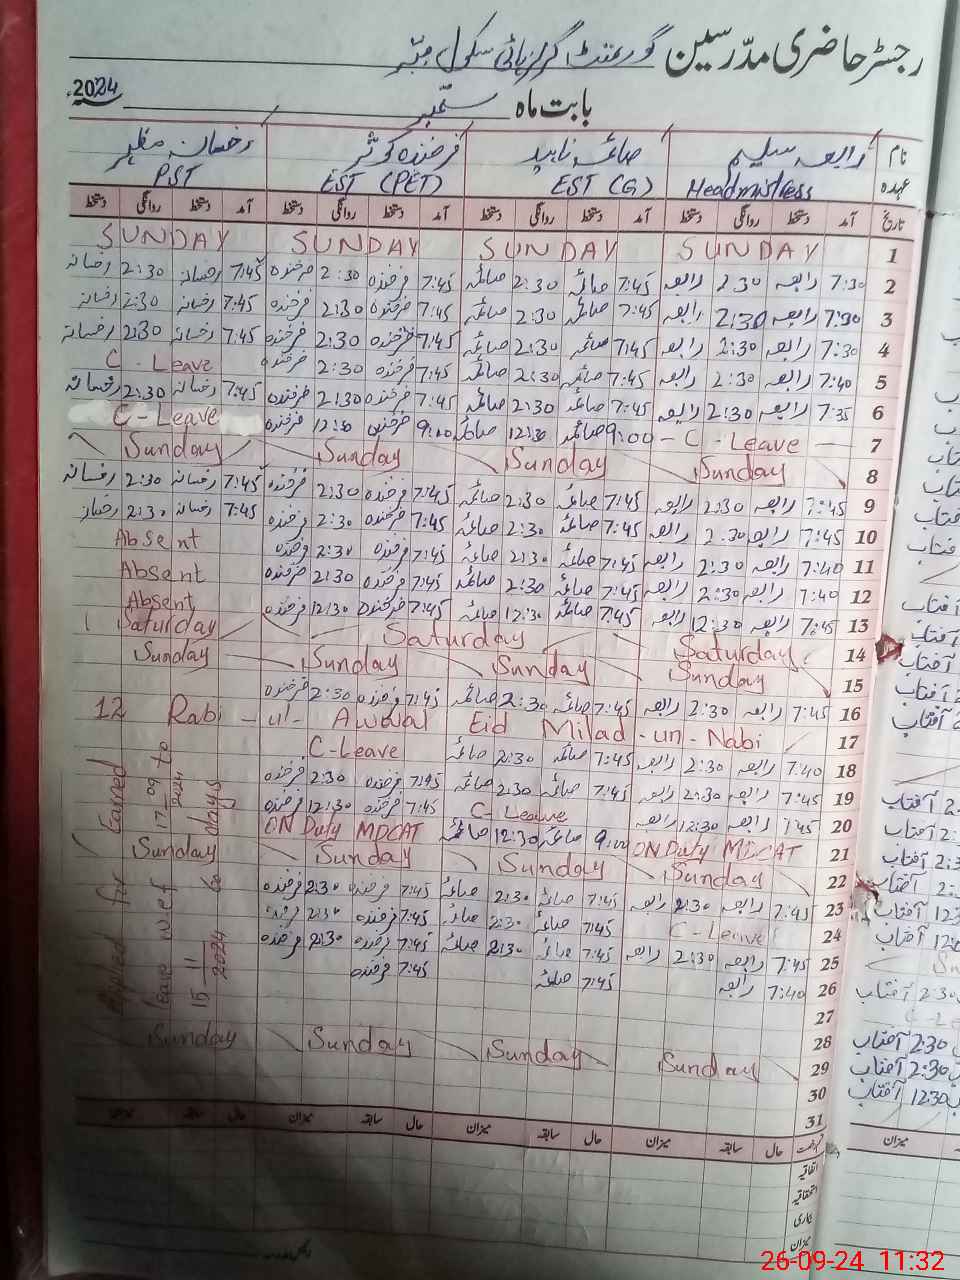 رجسٹر حاضری مدرسین گورنمنٹ گرلز ہائی سکول
بابت ماہ ستمبر 2024
نام رابعہ سلیم صائمہ ناہید فرخندہ کوثر رخسانہ مظہر
عہدہ Headmistress EST (G) EST (PET) PST
تاریخ آمد دستخط روانگی دستخط آمد دستخط روانگی دستخط آمد دستخط روانگی دستخط آمد دستخط روانگی دستخط
1 SUNDAY SUNDAY SUNDAY SUNDAY
2 7:30 رابعہ 2:30 رابعہ 7:45 صائمہ 2:30 صائمہ 7:45 فرخندہ 2:30 فرخندہ 7:45 رخسانہ 2:30 رخسانہ
3 7:30 رابعہ 2:30 رابعہ 7:45 صائمہ 2:30 صائمہ 7:45 فرخندہ 2:30 فرخندہ 7:45 رخسانہ 2:30 رخسانہ
4 7:30 رابعہ 2:30 رابعہ 7:45 صائمہ 2:30 صائمہ 7:45 فرخندہ 2:30 فرخندہ 7:45 رخسانہ 2:30 رخسانہ
5 7:40 رابعہ 2:30 رابعہ 7:45 صائمہ 2:30 صائمہ 7:45 فرخندہ 2:30 فرخندہ C-Leave
6 7:35 رابعہ 2:30 رابعہ 7:45 صائمہ 2:30 صائمہ 7:45 فرخندہ 2:30 فرخندہ 7:45 رخسانہ 2:30 رخسانہ
7 C-Leave 9:00 صائمہ 12:30 صائمہ 9:00 فرخندہ 12:30 فرخندہ C-Leave
8 Sunday Sunday Sunday Sunday
9 7:45 رابعہ 2:30 رابعہ 7:45 صائمہ 2:30 صائمہ 7:45 فرخندہ 2:30 فرخندہ 7:45 رخسانہ 2:30 رخسانہ
10 7:45 رابعہ 2:30 رابعہ 7:45 صائمہ 2:30 صائمہ 7:45 فرخندہ 2:30 فرخندہ 7:45 رخسانہ 2:30 رخسانہ
11 7:40 رابعہ 2:30 رابعہ 7:45 صائمہ 2:30 صائمہ 7:45 فرخندہ 2:30 فرخندہ Absent
12 7:40 رابعہ 2:30 رابعہ 7:45 صائمہ 2:30 صائمہ 7:45 فرخندہ 2:30 فرخندہ Absent
13 7:45 رابعہ 12:30 رابعہ 7:45 صائمہ 12:30 صائمہ 7:45 فرخندہ 12:30 فرخندہ Absent
14 Saturday Saturday Saturday
15 Sunday Sunday Sunday Sunday
16 7:45 رابعہ 2:30 رابعہ 7:45 صائمہ 2:30 صائمہ 7:45 فرخندہ 2:30 فرخندہ
17 12 Rabi-ul-Awwal Eid Milad-un-Nabi
18 7:40 رابعہ 2:30 رابعہ 7:45 صائمہ 2:30 صائمہ C-Leave
19 7:45 رابعہ 2:30 رابعہ 7:45 صائمہ 2:30 صائمہ 7:45 فرخندہ 2:30 فرخندہ
20 7:45 رابعہ 12:30 رابعہ C-Leave 7:45 فرخندہ 12:30 فرخندہ
21 ON Duty MDCAT 9:00 صائمہ 12:30 صائمہ ON Duty MDCAT
22 Sunday Sunday Sunday Sunday
23 7:45 رابعہ 2:30 رابعہ 7:45 صائمہ 2:30 صائمہ 7:45 فرخندہ 2:30 فرخندہ
24 C-Leave 7:45 صائمہ 2:30 صائمہ 7:45 فرخندہ 2:30 فرخندہ
25 7:45 رابعہ 2:30 رابعہ 7:45 صائمہ 2:30 صائمہ 7:45 فرخندہ 2:30 فرخندہ
26 7:40 رابعہ 7:45 صائمہ 7:45 فرخندہ
27
28
29 Sunday Sunday Sunday Sunday
30
31
Applied for Earned
leave w.e.f 17-09-2024 to
15-11-2024 60 days
حال سابقہ میزان حال سابقہ میزان حال سابقہ میزان حال سابقہ
اتفاقیہ
استحقاقیہ
بیماری
میزان
26-09-24 11:32